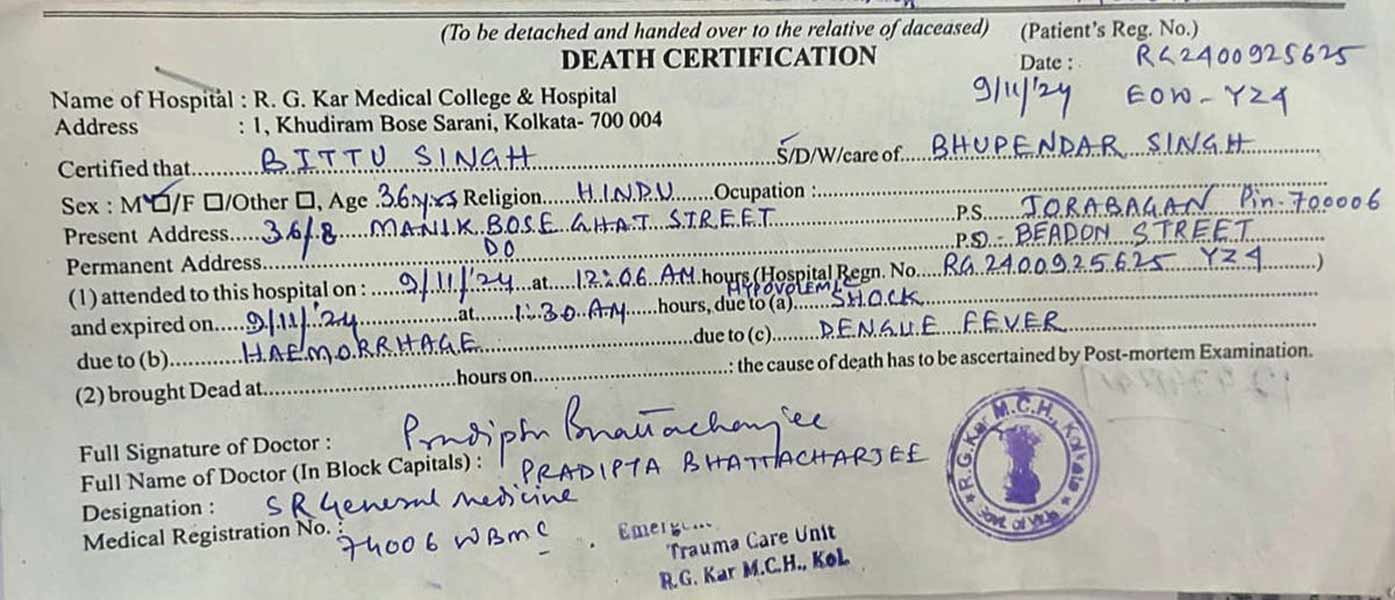 (To be detached and handed over to the relative of daceased) (Patient's Reg. No.)
DEATH CERTIFICATION
Date : RG2400925625
9/11/'24 EOW-YZ4
Name of Hospital : R. G. Kar Medical College & Hospital
Address : 1, Khudiram Bose Sarani, Kolkata- 700 004
Certified that BITTU SINGH S/D/W/care of BHUPENDAR SINGH
Sex : M /F /Other , Age 36yrs Religion HINDU Ocupation :
Present Address 36/8 MANIK BOSE GHAT STREET P.S. JORABAGAN Pin-700006
Permanent Address DO P.S - BEADON STREET
(1) attended to this hospital on : 9/11/'24 at 12:06 AM hours (Hospital Regn. No. RG 2400925625 YZ4 )
and expired on 9/11/'24 at 1:30 AM hours, due to (a) HYPOVOLEMIC SHOCK
due to (b) HAEMORRHAGE due to (c) DENGUE FEVER
(2) brought Dead at hours on : the cause of death has to be ascertained by Post-mortem Examination.
Full Signature of Doctor : Pradipta Bhattacharjee
Full Name of Doctor (In Block Capitals) : PRADIPTA BHATTACHARJEE
Designation : SR General Medicine
Medical Registration No. : 74006 WBMC
Trauma Care Unit
R.G. Kar M.C.H., Kol.
R.G. Kar M.C.H., Kolkata
Govt. of W.B.